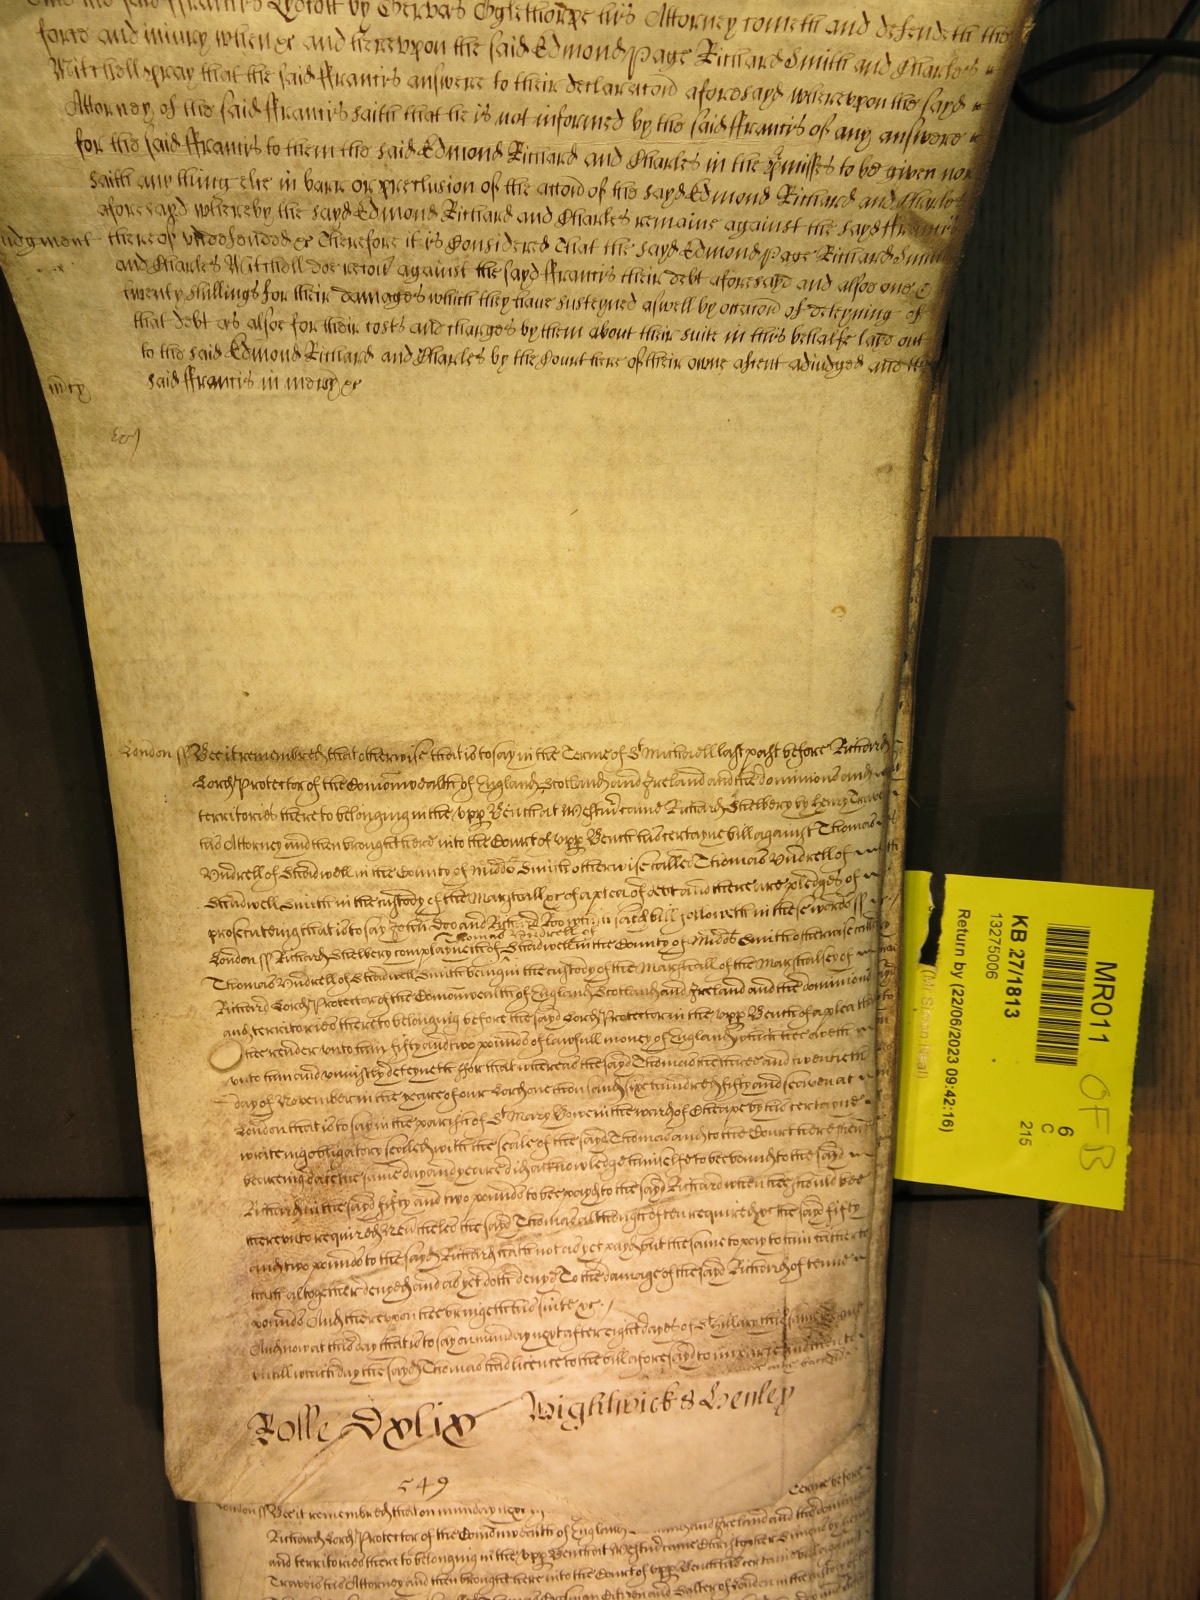 And the said Ffrancis by Gervas Oglethorpe his Attorney cometh and defendeth the
force and iniury when &c and therevpon the said Edmond Page Richard Smith and Charles
Mitchell pray that the said Ffrancis answere to their declaracon aforesayd wherevpon the sayd
Attorney of the said Ffrancis saith that he is not informed by the said Ffrancis of any answere
for the said Ffrancis to them the said Edmond Richard and Charles in the pmisses to be given nor
saith any thing else in barr or preclusion of the accon of the sayd Edmond Richard and Charles
aforesayd whereby the sayd Edmond Richard and Charles remaine against the sayd Ffrancis
Judgment thereof vndefended &c Therefore it is Considered That the sayd Edmond Page Richard Smith
and Charles Mitchell doe recou against the sayd Ffrancis their debt aforesayd and alsoe one
twenty shillings for their damages which they have susteyned aswell by occacon of deteyning of
that debt as alsoe for their costs and charges by them about their suite in this behalfe layd out
to the said Edmond Richard and Charles by the Court here of their owne assent adiudged and the
said Ffrancis in mercy &c
London ss Bee it remembred that otherwise that is to say in the Terme of St Michaell last past before Richard
Lord Protector of the Comonwealth of England Scotland and Ireland and the dominions and
territories thereto belonging in the vpp Bench at Westmr came Richard Shelbery by Henry Travers
his Attorney and then brought here into the Court of vpp Bench his certayne bill against Thomas
Vndrell of Shadwell in the County of Midds Smith otherwise called Thomas Vndrell of
Shadwell Smith in the custody of the Marshall &c of a plea of debt and there are pledges of
prosecuting that is to say John Doo and Richard Roo which said bill followeth in these words ss
Thomas Vndrell of
London ss Richard Shelbery complayneth of Shadwell in the County of Midds Smith otherwise called
Thomas Vndrell of Shadwell Smith being in the custody of the Marshall of the Marshalsey of
Richard Lord Protector of the Comonwealth of England Scotland and Ireland and the dominions
and territories thereto belonging before the sayd Lord Protector in the vpp Bench of a plea that
hee render vnto him fifty and two pounds of lawfull money of England which hee oweth
vnto him and vniustly deteyneth For that whereas the sayd Thomas the three and twentieth
day of November in the yeare of our Lord one thousand six hundred fifty and seaven at
London that is to say in the parish of St Mary Bow in the ward of Cheape by his certayne
writeing obligatory sealed with the seale of the sayd Thomas and to the Court here shewn
beareing date the same day and yeare did acknowledge himselfe to bee bound to the sayd
Richard in the sayd fifty and two pounds to bee payd to the sayd Richard when hee should bee
therevnto required Neutheles the sayd Thomas although often required &c the sayd fifty
and two pounds to the sayd Richard hath not as yet payd but the same to pay to him hitherto
hath altogether denyed and as yet doth deny To the damage of the sayd Richard of tenne
pounds And therevpon hee bringeth his suite &c
And now at this day that is to say on munday next after eight dayes of St Hillary this same Terme
vntill which day the sayd Thomas had licence to the bill aforesayd to imparle and then to
Rolle Dxlix Wightwick & Henley
549
London ss Bee it remembred that on munday next
Terme before
Richard Lord Protector of the Comonwealth of England Scotland and Ireland and the dominions
and territories thereto belonging in the vpp Bench at Westmr came Christopher
Travers his Attorney and then brought here into the Court of vpp Bench his certaine bill against
Citizen and Salter of London in the custody of
MR011 OFB
6
C
215
KB 27/1813
13275006
Return by (22/06/2023 09:42:16)